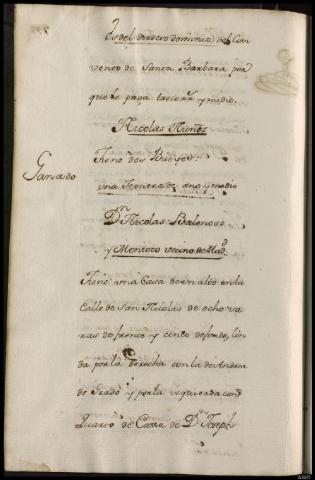 Es del directo dominio del Con
vento de Santa Barbara por
que le paga trece rr.s y medio
Nicolas Nuñez
Ganado
Tiene dos Bueyes
una Ternera de año y medio
Dn Nicolas Balenose
y Montoto vecino de Mad.
Tiene una Casa de un alto en la
Calle de San Nicolas de ocho va
ras de frente y cinco de fondo, lin
da por la derecha con la de Andrea
de Prado y por la izquierda con
Quarto de Casa de Dn Joseph